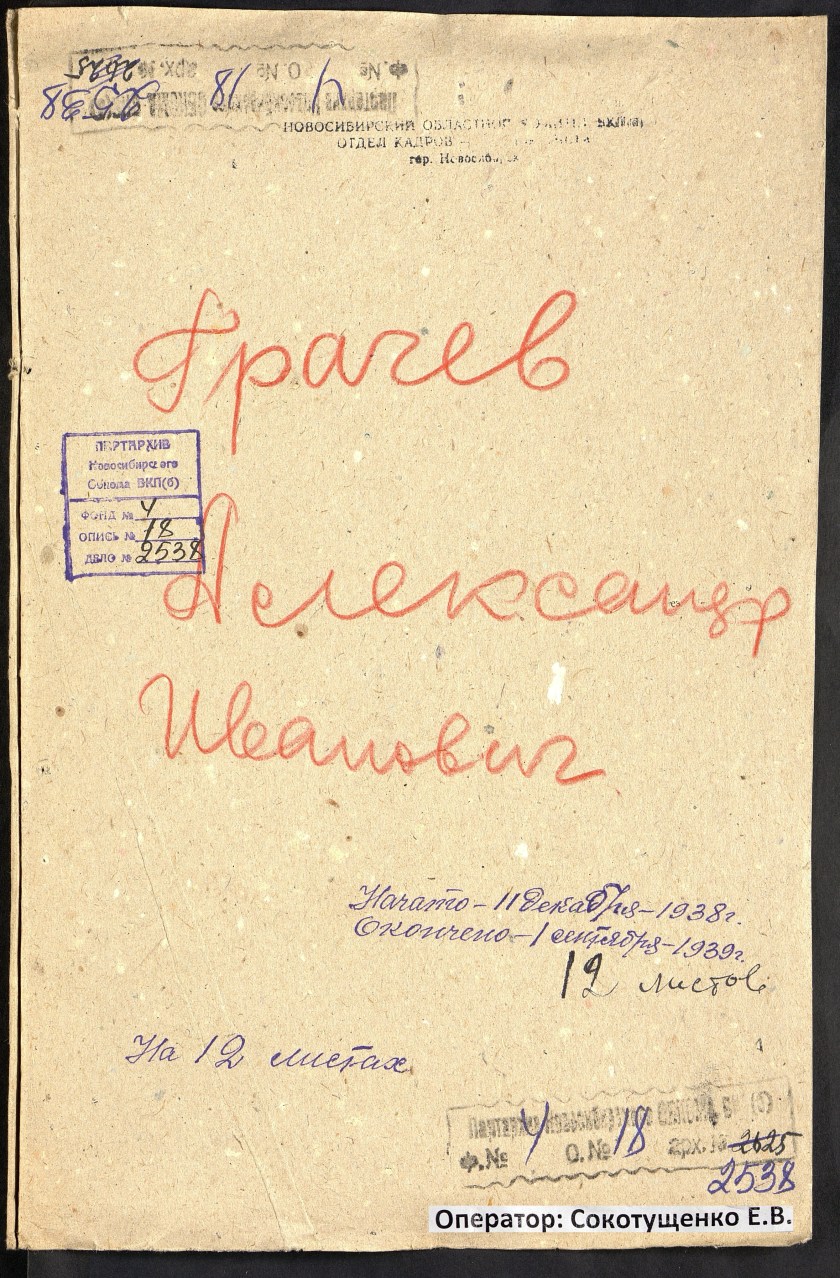 2625
Ф. № 4 О. № 18 арх. №
2538
НОВОСИБИРСКИЙ ОБЛАСТНОЙ ВКП(б)
ОТДЕЛ КАДРОВ
гор. Новосибирск
Грачев
ПАРТАРХИВ
Новосибирского
Обкома ВКП(б)
ФОНД № 4
ОПИСЬ № 18
ДЕЛО № 2538
Александр
Иванович
Начато – 11 декабря – 1938 г.
Окончено – 1 сентября – 1939 г.
12 листов
На 12 листах
Партархив Новосибирского
Ф. № 4 О. № 18 арх. № 2625
2538
Оператор: Сокотущенко Е.В.